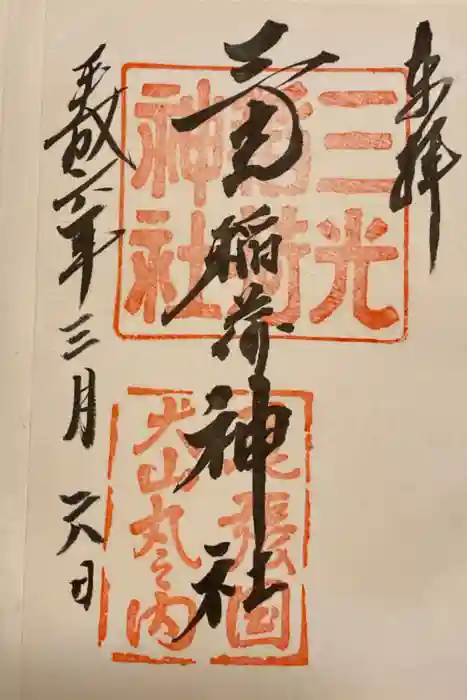 奉拝
三光稲荷神社
平成年三月日
三光
稲荷
神社
尾張国
犬山丸之内